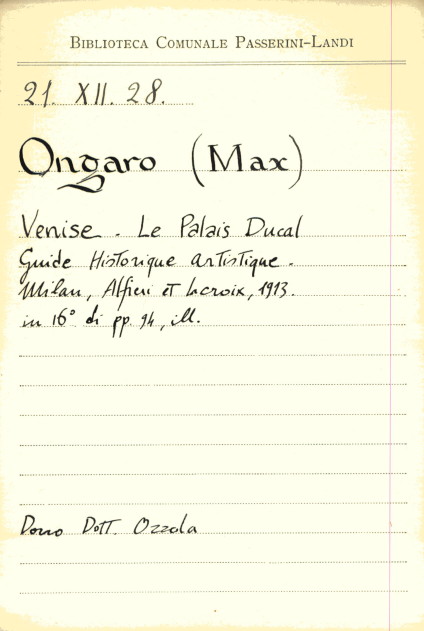 Biblioteca Comunale Passerini-Landi
21. XII. 28.
Ongaro (Max)
Venise. Le Palais Ducal
Guide Historique artistique.
Milan, Alfieri et Lacroix, 1913.
in 16° di pp. 94, ill.
Dono Dott. Ozzola